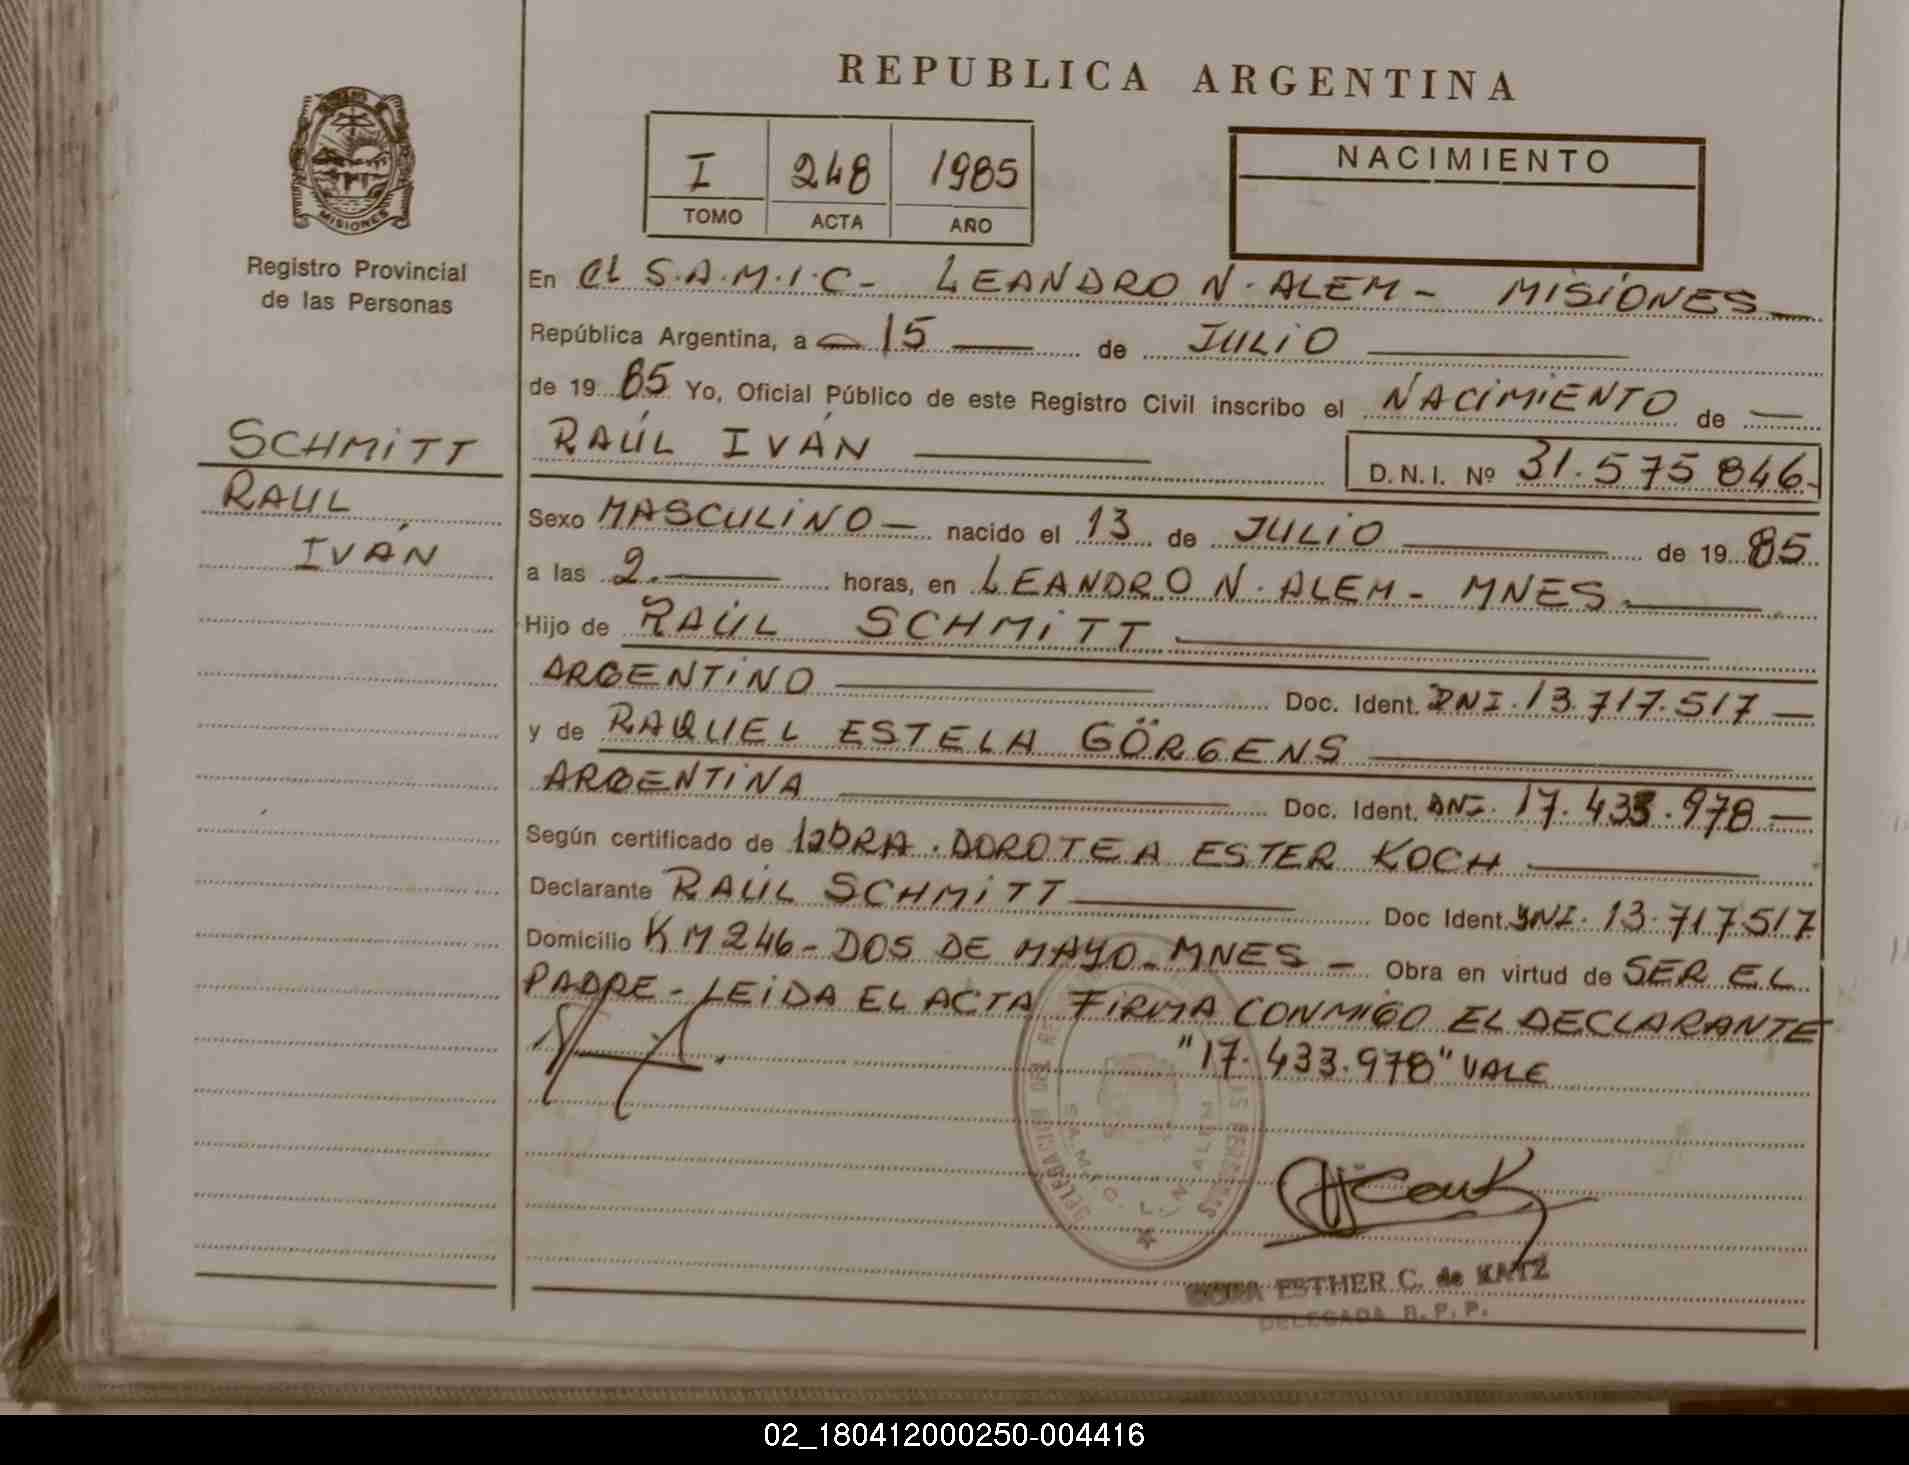 REPUBLICA ARGENTINA
MISIONES
Registro Provincial
de las Personas
I 248 1985
TOMO ACTA AÑO
NACIMIENTO
SCHMITT
RAUL
IVÁN
En el S.A.M.I.C- LEANDRO N. ALEM - MISIONES
República Argentina, a 15 de JULIO
de 19 85 Yo, Oficial Público de este Registro Civil inscribo el NACIMIENTO de
RAÚL IVÁN D.N.I. Nº 31.575 846-
Sexo MASCULINO - nacido el 13 de JULIO de 19 85
a las 2. horas, en LEANDRO N. ALEM - MNES
Hijo de RAÚL SCHMITT
ARGENTINO Doc. Ident. DNI. 13.717.517
y de RAQUEL ESTELA GÖRGENS
ARGENTINA Doc. Ident. DNI. 17.433.978
Según certificado de DRA. DOROTEA ESTER KOCH
Declarante RAÚL SCHMITT Doc Ident. DNI. 13.717517
Domicilio KM 246 - DOS DE MAYO - MNES - Obra en virtud de SER EL
PADRE - LEIDA EL ACTA FIRMA CONMIGO EL DECLARANTE
"17.433.978" VALE
DELEGACION DEL
S.A.M.I.C. L. N. ALEM
ESTHER C. de KATZ
DELEGADA R. P. P.
02_180412000250-004416